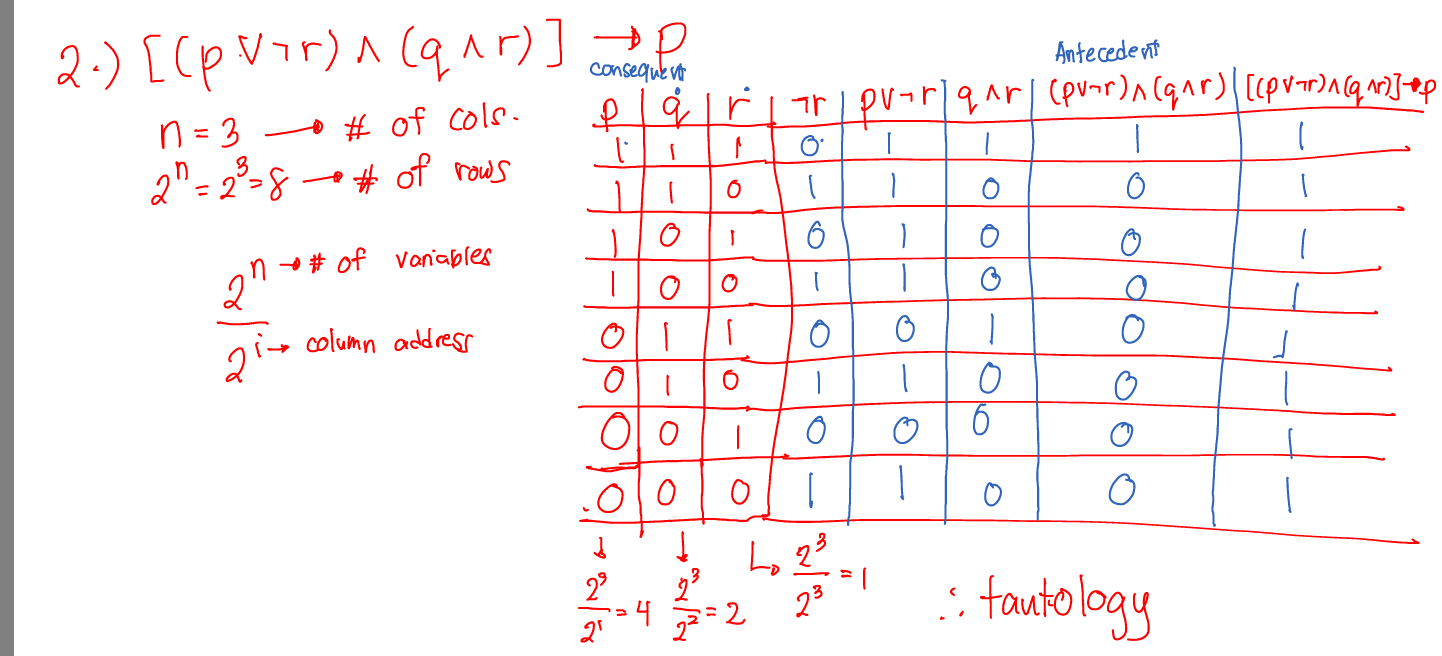 2.) [(p ∨ ¬r) ∧ (q ∧ r)] → p
n = 3 → # of cols.
2ⁿ = 2³ = 8 → # of rows
2ⁿ → # of variables
2ⁱ → column address
consequent
Antecedent
p | q | r | ¬r | p∨¬r | q∧r | (p∨¬r)∧(q∧r) | [(p∨¬r)∧(q∧r)]→p
1 | 1 | 1 | 0 | 1 | 1 | 1 | 1
1 | 1 | 0 | 1 | 1 | 0 | 0 | 1
1 | 0 | 1 | 0 | 1 | 0 | 0 | 1
1 | 0 | 0 | 1 | 1 | 0 | 0 | 1
0 | 1 | 1 | 0 | 0 | 1 | 0 | 1
0 | 1 | 0 | 1 | 1 | 0 | 0 | 1
0 | 0 | 1 | 0 | 0 | 0 | 0 | 1
0 | 0 | 0 | 1 | 1 | 0 | 0 | 1
2³/2¹ = 4
2³/2² = 2
2³/2³ = 1
∴ tautology